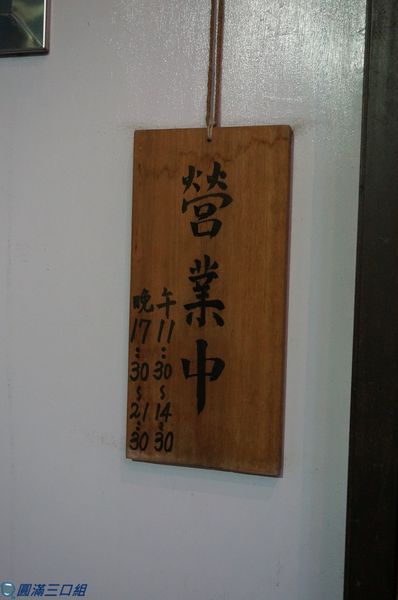 營業中
午11:30~14:30
晚17:30~21:30
圓滿三口組